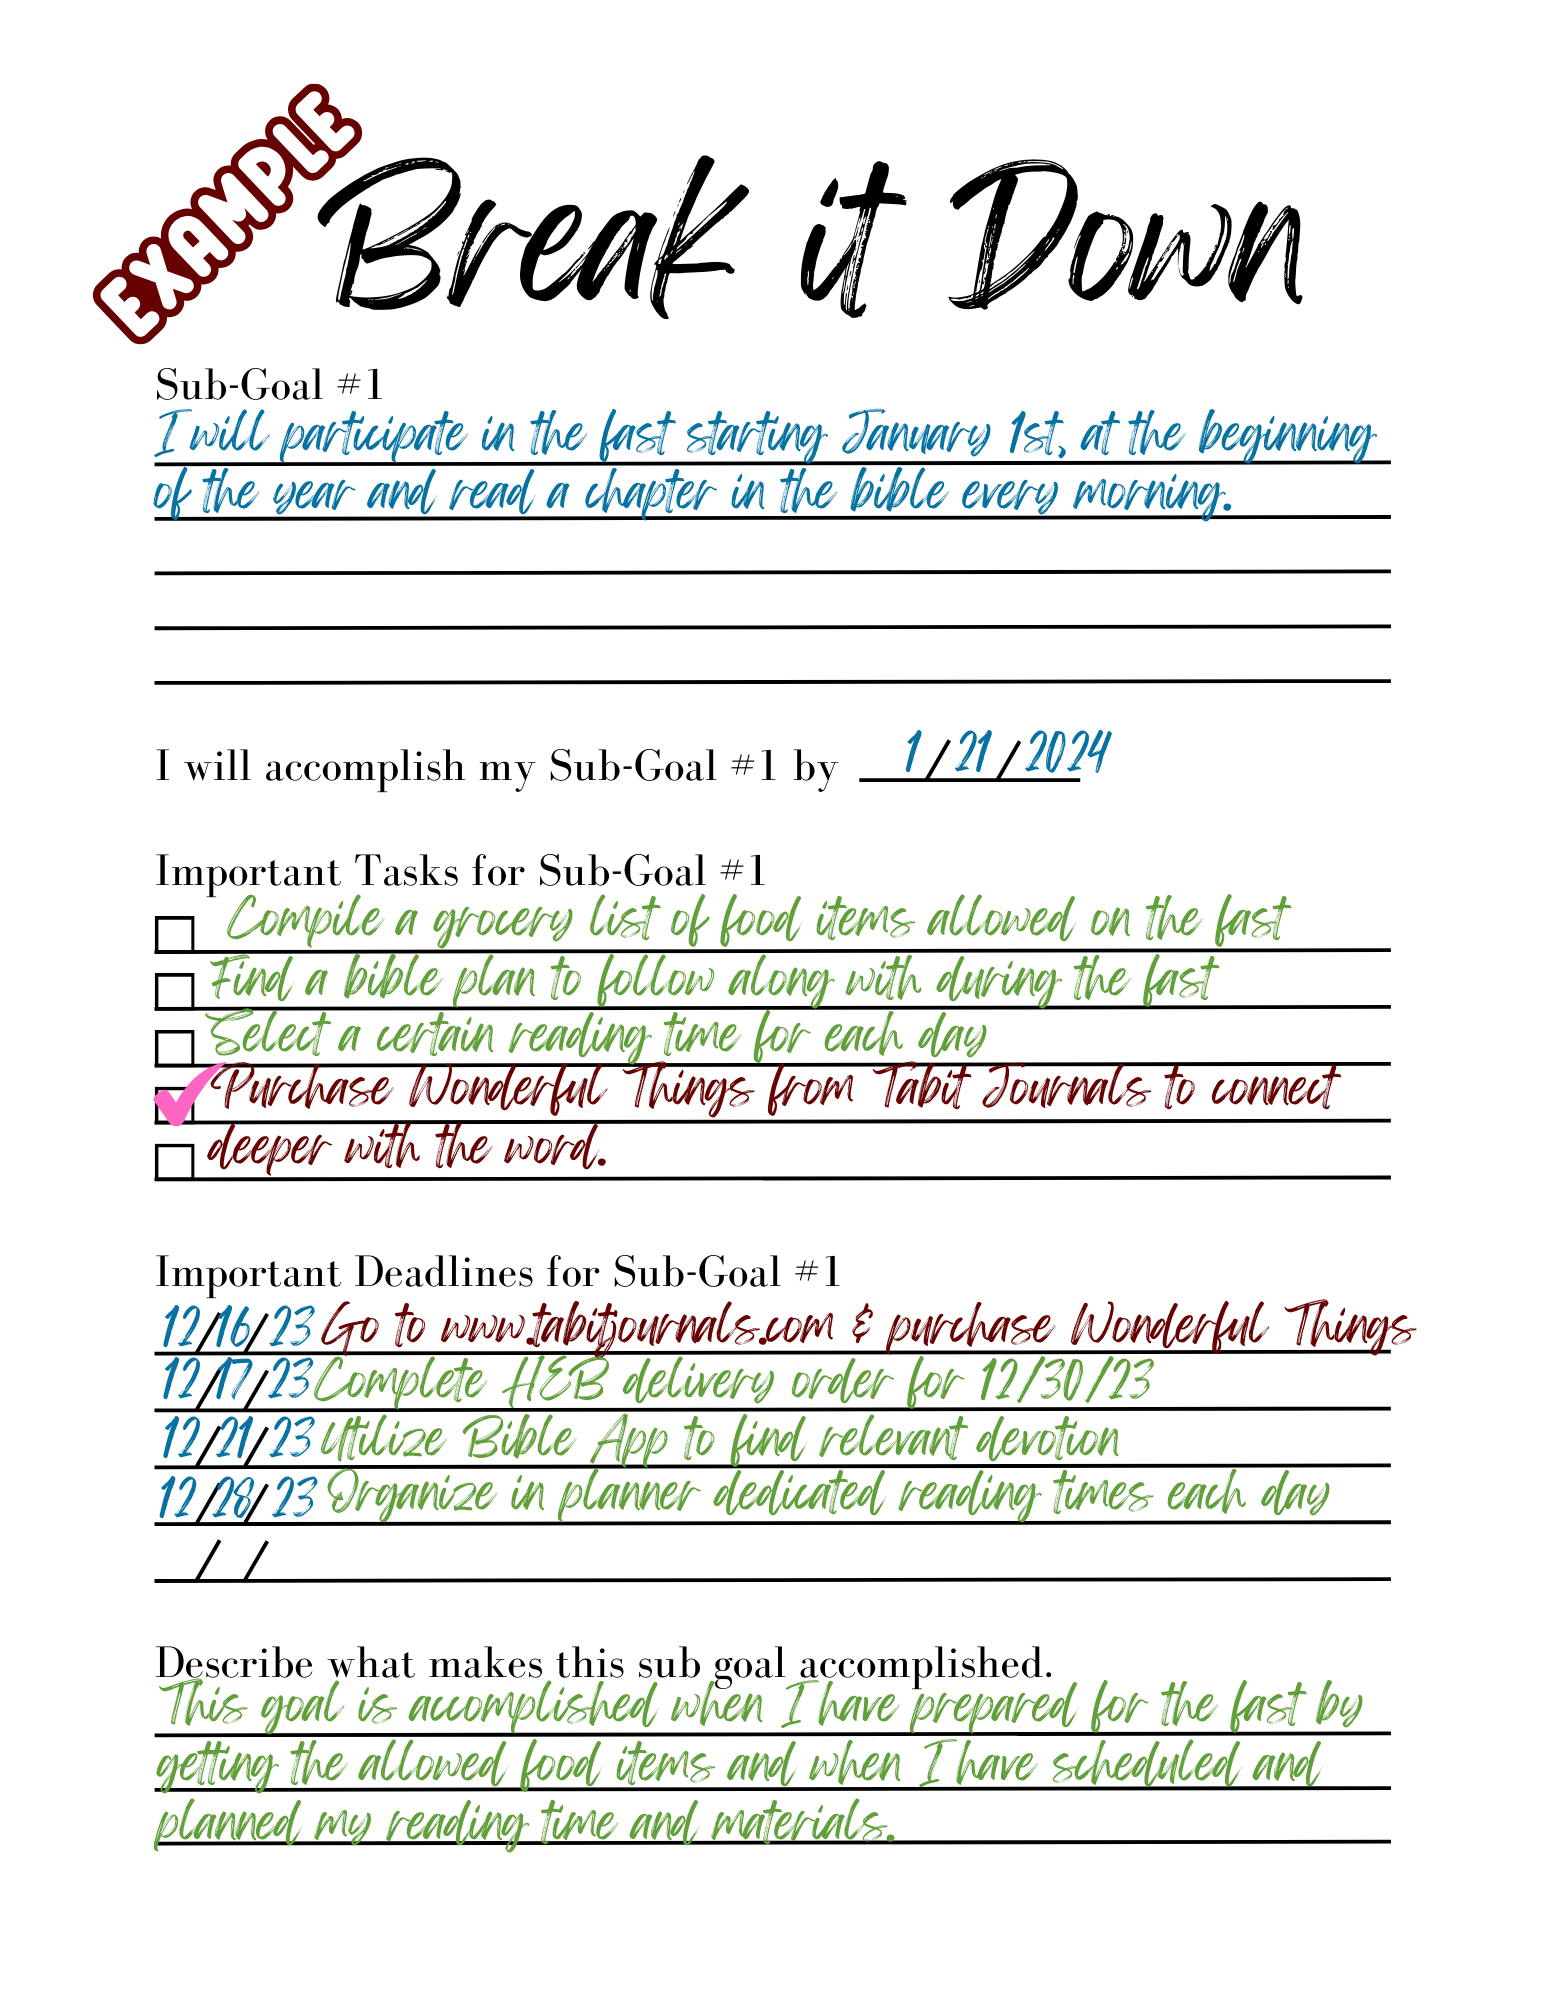 EXAMPLE
Break it Down
Sub-Goal #1
I will participate in the fast starting January 1st, at the beginning
of the year and read a chapter in the bible every morning.
I will accomplish my Sub-Goal #1 by 1/21/2024
Important Tasks for Sub-Goal #1
Compile a grocery list of food items allowed on the fast
Find a bible plan to follow along with during the fast
Select a certain reading time for each day
Purchase Wonderful Things from Tabit Journals to connect
deeper with the word.
Important Deadlines for Sub-Goal #1
12/16/23 Go to www.tabitjournals.com & purchase Wonderful Things
12/17/23 Complete HEB delivery order for 12/30/23
12/21/23 Utilize Bible App to find relevant devotion
12/28/23 Organize in planner dedicated reading times each day
/ /
Describe what makes this sub goal accomplished.
This goal is accomplished when I have prepared for the fast by
getting the allowed food items and when I have scheduled and
planned my reading time and materials.